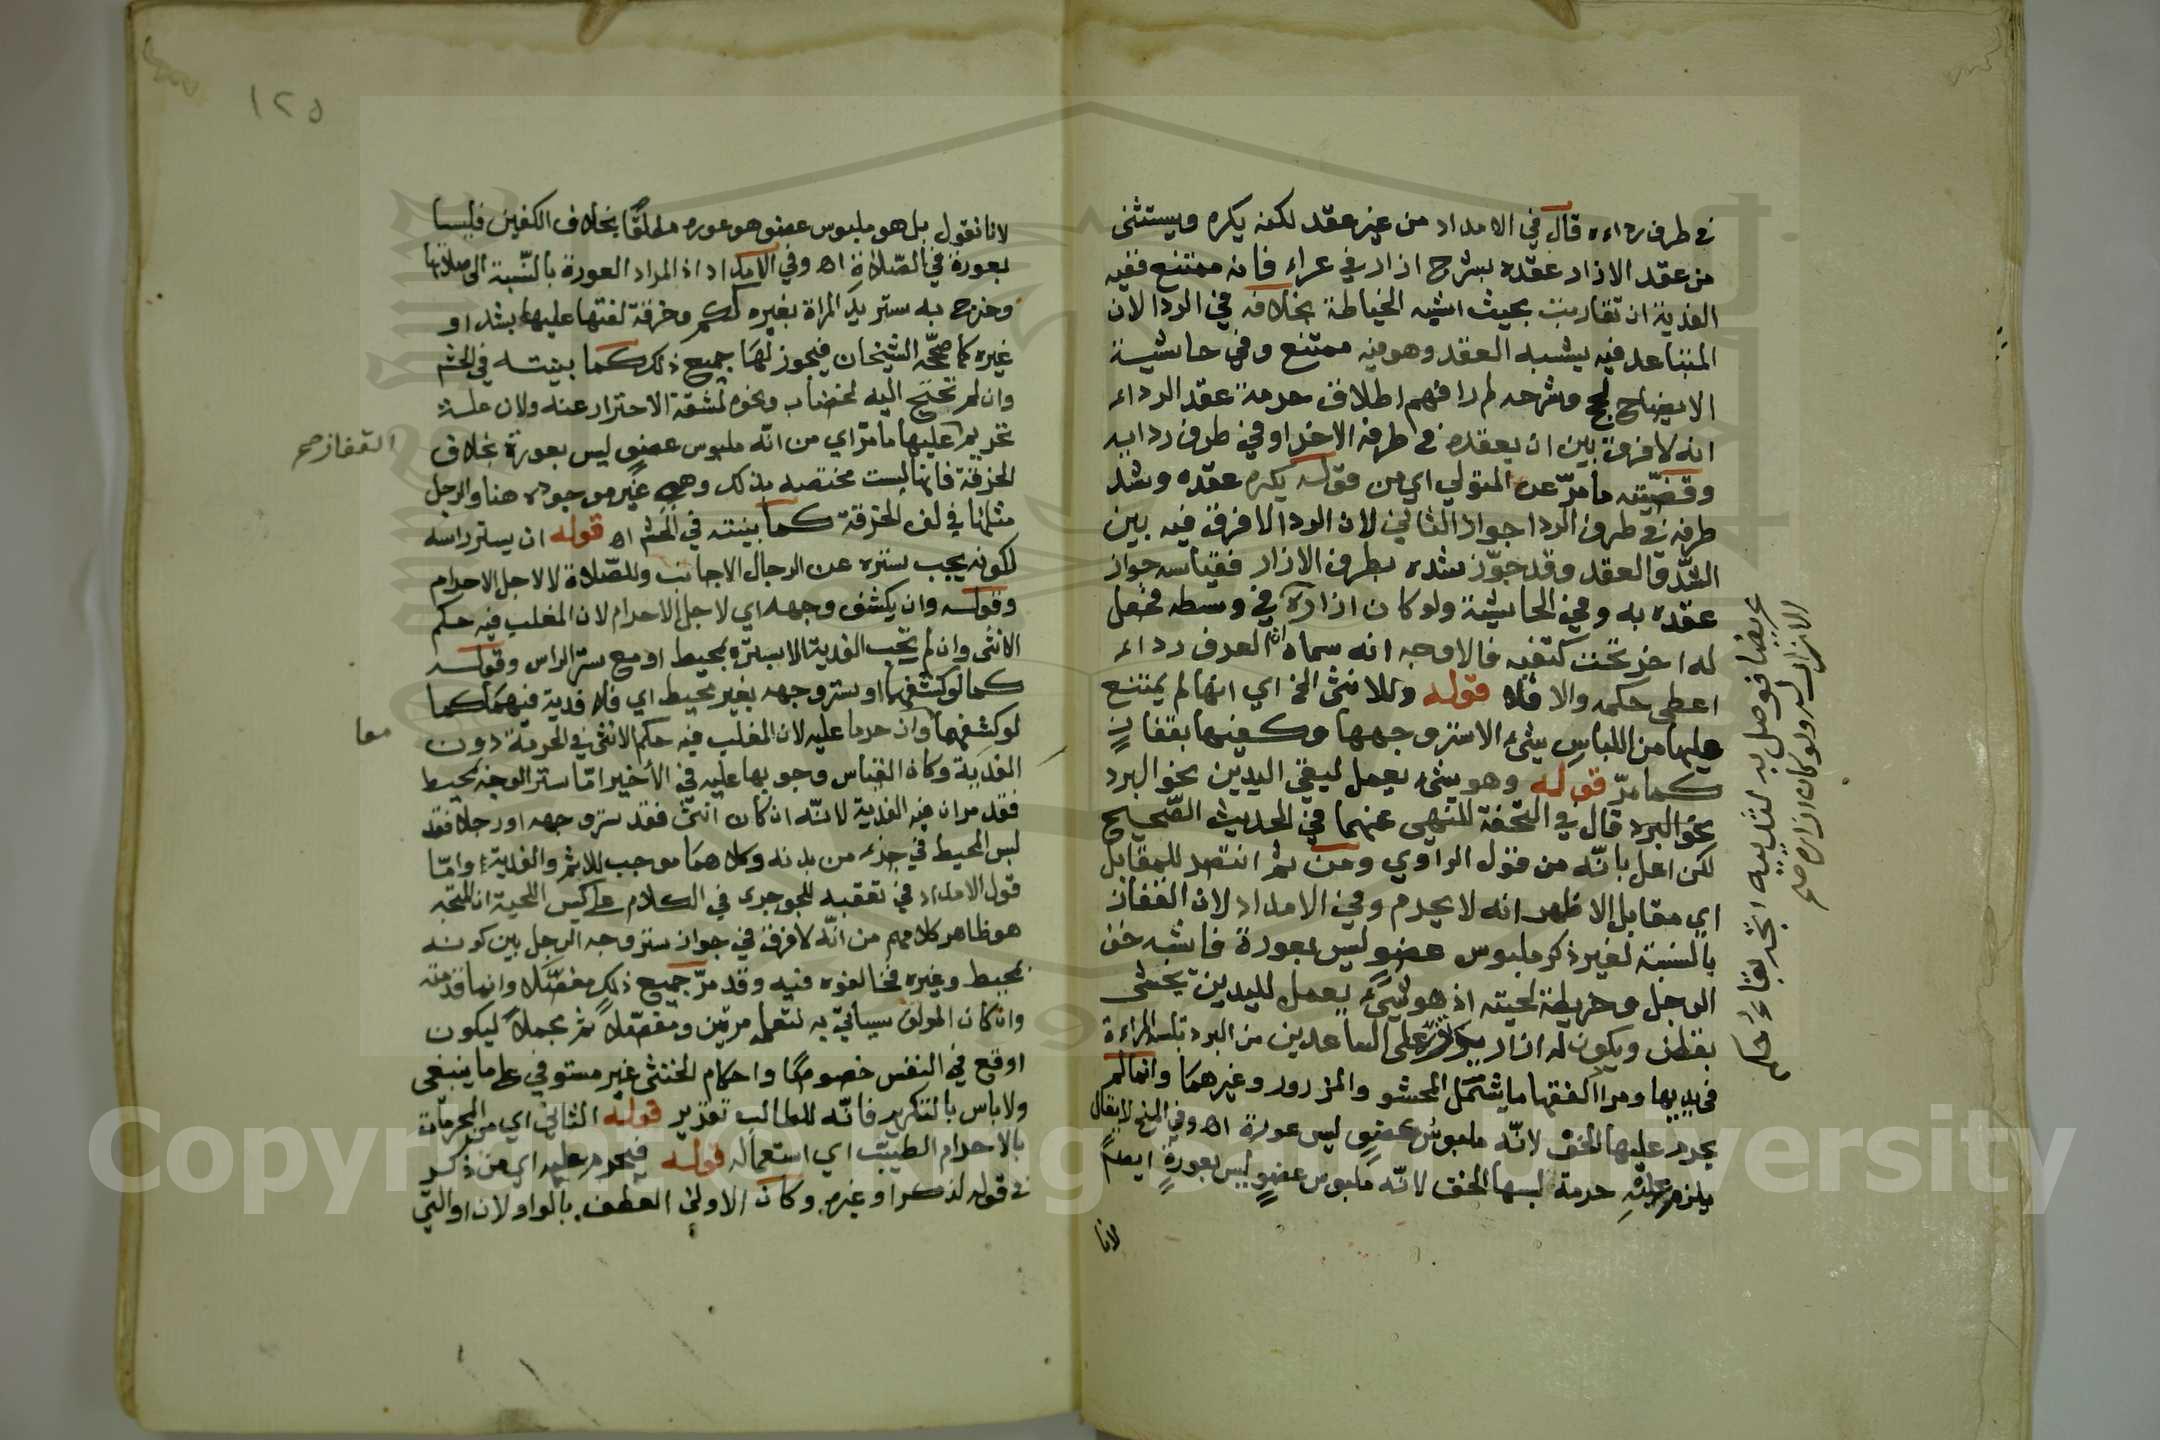 في طرف رداءه قال في الامداد من غير عقد لكنه يكره ويستثنى
من عقد الازار عقده بشرج ازار في عراء فانه ممتنع ففيه
الفدية ان تقاربت بحيث اشبه الخياطة بخلافه في الردا لان
المتباعد فيه يشبه العقد وهو فيه ممتنع وفي حاشية
الايضاح لحج وشرحه لم را فهم اطلاق حرمة عقد الرداء
انه لا فرق بين ان يعقده في طرفه الاخر او في طرف ردائه
وقضيته ما مر عن المتولي اي من قوله يكره عقده وشد
طرفه في طرف الردا جواز الثاني لان الردا لا فرق فيه بين
الشد والعقد وقد جوز شده بطرف الازار فقياسه جواز
عقده به وفي الحاشية ولو كان ازاره في وسطه فجعل
له اخر تحت كتفيه فالاوجه انه سماه العرف رداء
اعطي حكمه والا فلا قوله وللانثى الخ اي انها لم يمتنع
عليها من اللباس شيء الا ستر وجهها وكفيها بقفازين
كما مر قوله وهو شيء يعمل ليقي اليدين نحو البرد
نحو البرد قال في التحفة للنهي عنهما في الحديث الصحيح
لكن اعل بانه من قول الراوي ومن ثم انتصر للمقابل
اي مقابل الاظهر انه لا يحرم وفي الامداد لان القفاز
بالنسبة لغير ذكر ملبوس عضو ليس بعورة فاشبه خف
الرجل وخريطة لحيته اذ هو شيء يعمل لليدين يحشى
بقطن ويكون له ازار يزر على الساعدين من البرد تلبسه المراءة
في يديها ومراد الفقها ما يشمل المحشو والمزرور وغيرهما وانما لم
يحرم عليها الخف لانه ملبوس عضو ليس عورة اه وفي المنح لا يقال
يلزم عليه حرمة لبسها الخف لانه ملبوس عضو ليس بعورة ايضا
لانا
عريضا فوصل به لثدييه اتجه بقاءه
الازار له ولو كان ازار صح
١٢٥
لانا نقول بل هو ملبوس عضو هو عورة مطلقا بخلاف الكفين فليسا
بعورة في الصلاة اه وفي الامداد اذ المراد العورة بالنسبة الى صلاتها
وخرج به ستر يد المراة بغيره ككم وخرقة لفتها عليها بشد او
غيره كما صححه الشيخان فيجوز لها جميع ذلك كما بينته في الحشم
وان لم تحتج اليه لخضاب ونحوه لمشقة الاحتراز عنه ولان علة
تحريم عليها ما مر اي من انه ملبوس عضو ليس بعورة بخلاف
القفاز صح
الخرقة فانها ليست مختصة بذلك وهي غير موجوده هنا والرجل
مثلها في لف الخرقة كما بينته في الحشم اه قوله ان يستر راسه
لكونه يجب ستره عن الرجال الاجانب وللصلاة لا لاجل الاحرام
وقوله وان يكشف وجهه اي لاجل الاحرام لان المغلب فيه حكم
الانثى وان لم تجب الفدية الا بستره بمحيط او مع ستر الراس وقوله
كما لو كشفهما او ستر وجهه بغير محيط اي فلا فدية فيهما كما
لو كشفهما وان حرما عليه لان المغلب فيه حكم الانثى في الحرمة دون
معا
الفدية وكان القياس وجوبها عليه في الأخير اما ستر الوجه بمحيط
فقد مر ان فيه الفدية لانه ان كان انثى فقد ستر وجهه او رجلا فقد
لبس المحيط في جزء من بدنه وكلاهما موجب للاثم والفدية واما
قول الامداد في تعقبه للجوجري في الكلام على كيس اللحية ان المتجه
هو ظاهر كلامهم من انه لا فرق في جواز ستر وجه الرجل بين كونه
بمحيط وغيره فخالفوه فيه وقد مر جميع ذلك مفصلا وانما قدمته
وان كان المولف سيأتي به لتعلمه مرتين ومفصلا ثم مجملا ليكون
اوقع في النفس خصوصا واحكام الخنثى غير مستوفي على ما ينبغي
ولا باس بالتكرير فانه للطالب تقرير قوله الثاني اي من المحرمات
بالاحرام الطيب اي استعماله قوله فيحرم عليه اي من ذكر
في قوله لذكر او غيره وكان الاولى العطف بالواو لان او التي
Copyright © King Saud University